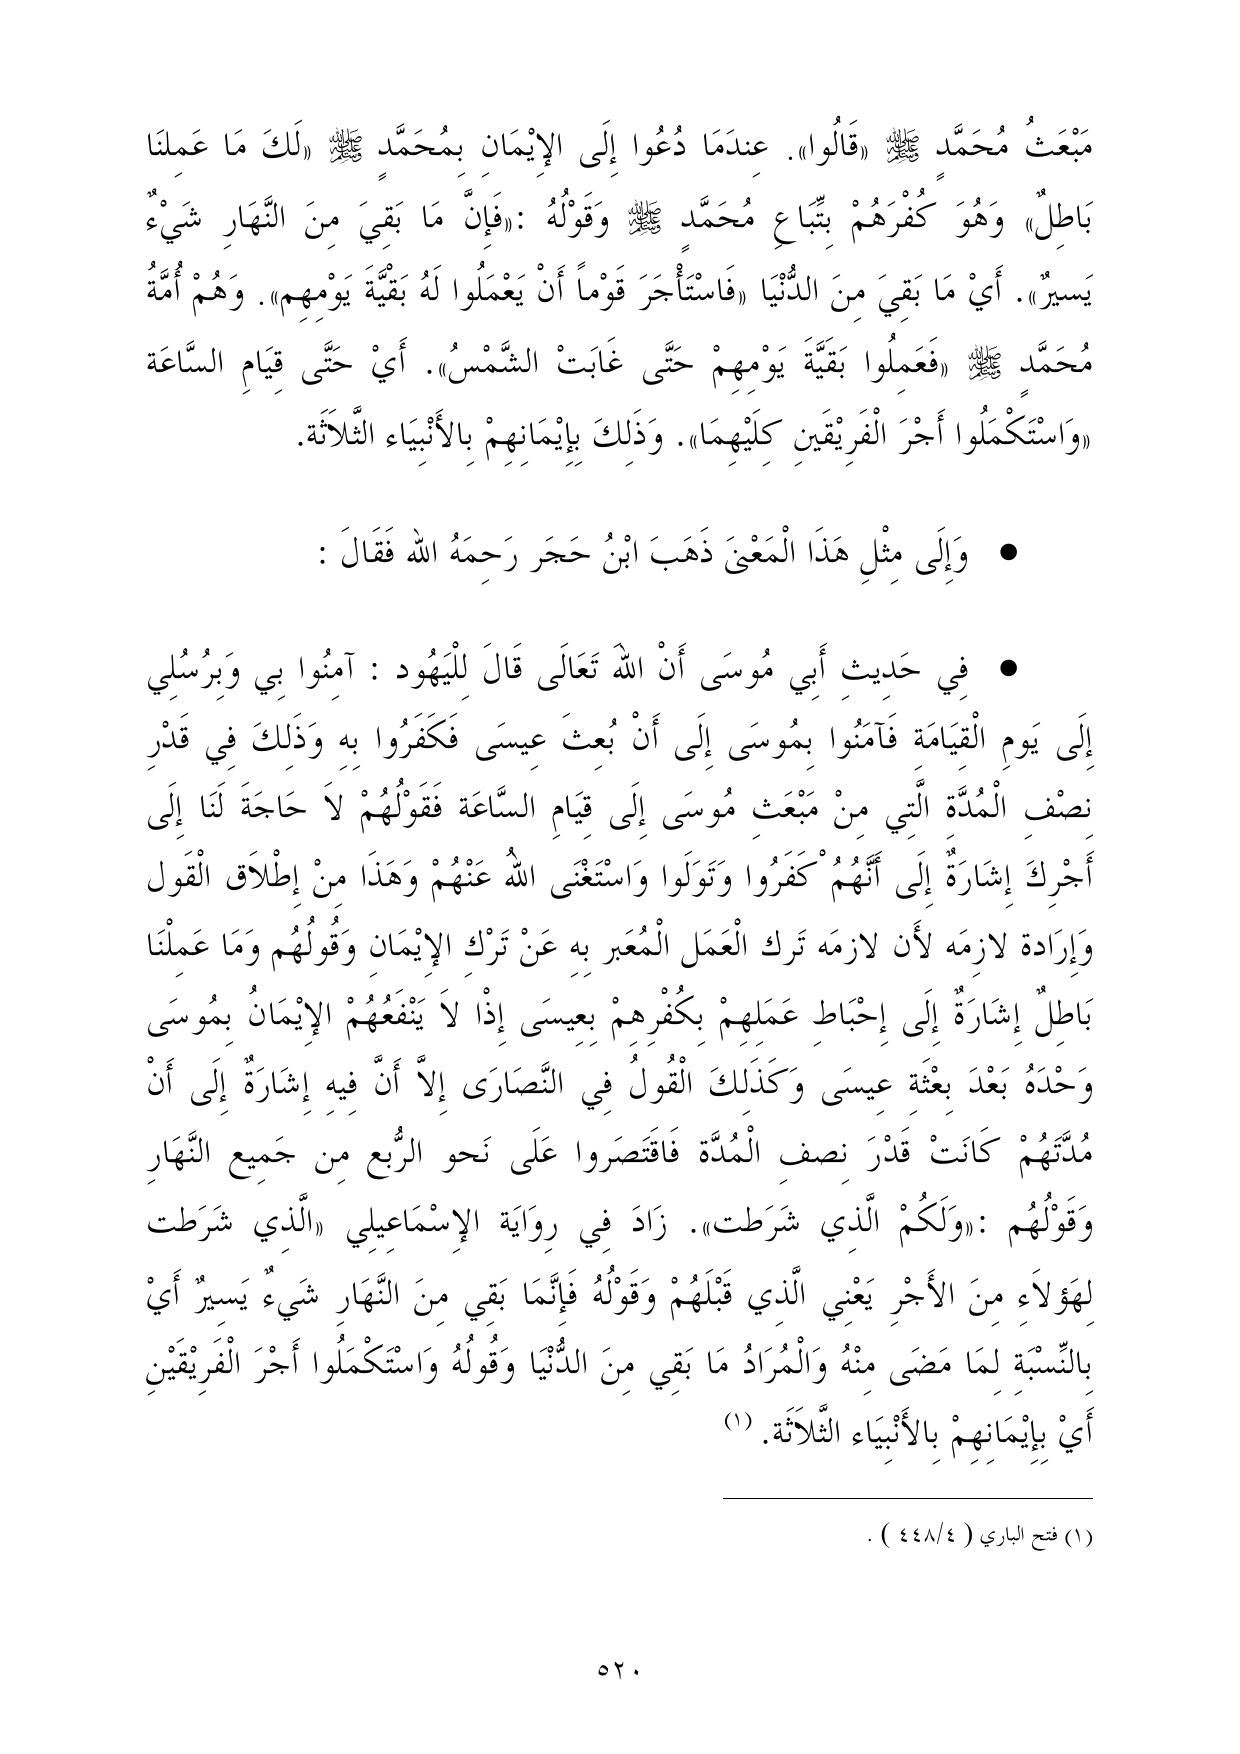 مَبْعَثُ مُحَمَّدٍ ﷺ «قَالُوا». عِندَمَا دُعُوا إِلَى الإِيْمَانِ بِمُحَمَّدٍ ﷺ «لَكَ مَا عَمِلنَا
بَاطِلٌ» وَهُوَ كُفْرَهُمْ بِتِّبَاعِ مُحَمَّدٍ ﷺ وَقَوْلُهُ :«فَإِنَّ مَا بَقِيَ مِنَ النَّهَارِ شَيْءٌ
يَسيرٌ». أَيْ مَا بَقِيَ مِنَ الدُّنْيَا «فَاسْتَأْجَرَ قَوْماً أَنْ يَعْمَلُوا لَهُ بَقْيَّةَ يَوْمِهِم». وَهُمْ أُمَّةُ
مُحَمَّدٍ ﷺ «فَعَمِلُوا بَقَيَّةَ يَوْمِهِمْ حَتَّى غَابَتْ الشَّمْسُ». أَيْ حَتَّى قِيَامِ السَّاعَة
«وَاسْتَكْمَلُوا أَجْرَ الْفَرِيْقَينِ كِلَيْهِمَا». وَذَلِكَ بِإِيْمَانِهِمْ بِالأَنْبِيَاء الثَّلاَثَة.
● وَإِلَى مِثْلِ هَذَا الْمَعْنَى ذَهَبَ ابْنُ حَجَر رَحِمَهُ الله فَقَالَ :
● فِي حَدِيثِ أَبِي مُوسَى أَنْ اللهَ تَعَالَى قَالَ لِلْيَهُود : آمِنُوا بِي وَبِرُسُلِي
إِلَى يَومِ الْقِيَامَةِ فَآمَنُوا بِمُوسَى إِلَى أَنْ بُعِثَ عِيسَى فَكَفَرُوا بِهِ وَذَلِكَ فِي قَدْرِ
نِصْفِ الْمُدَّةِ الَّتِي مِنْ مَبْعَثِ مُوسَى إِلَى قِيَامِ السَّاعَة فَقَوْلُهُمْ لاَ حَاجَةَ لَنَا إِلَى
أَجْرِكَ إِشَارَةٌ إِلَى أَنَّهُمْ كَفَرُوا وَتَوَلَوا وَاسْتَغْنَى اللهُ عَنْهُمْ وَهَذَا مِنْ إِطْلاَق الْقَول
وَإِرَادة لازِمَه لأَن لازمَه تَرك الْعَمَل الْمُعَبر بِهِ عَنْ تَرْكِ الإِيْمَانِ وَقُولُهُم وَمَا عَمِلْنَا
بَاطِلٌ إِشَارَةٌ إِلَى إِحْبَاطِ عَمَلِهِمْ بِكُفْرِهِمْ بِعِيسَى إِذْا لاَ يَنْفَعُهُمْ الإِيْمَانُ بِمُوسَى
وَحْدَهُ بَعْدَ بِعْثَةِ عِيسَى وَكَذَلِكَ الْقُولُ فِي النَّصَارَى إِلاَّ أَنَّ فِيهِ إِشَارَةٌ إِلَى أَنْ
مُدَّتَهُمْ كَانَتْ قَدْرَ نِصفِ الْمُدَّة فَاقَتَصَروا عَلَى نَحو الرُّبع مِن جَمِيع النَّهَارِ
وَقَوْلُهُم :«وَلَكُمْ الَّذِي شَرَطت». زَادَ فِي رِوَايَة الإِسْمَاعِيلِي «الَّذِي شَرَطت
لِهَؤلاَءِ مِنَ الأَجْرِ يَعْنِي الَّذِي قَبْلَهُمْ وَقَوْلُهُ فَإِنَّمَا بَقِي مِنَ النَّهَارِ شَيءٌ يَسِيرٌ أَيْ
بِالنِّسْبَةِ لِمَا مَضَى مِنْهُ وَالْمُرَادُ مَا بَقِي مِنَ الدُّنْيَا وَقُولُهُ وَاسْتَكْمَلُوا أَجْرَ الْفَرِيْقَيْنِ
أَيْ بِإِيْمَانِهِمْ بِالأَنْبِيَاء الثَّلاَثَة. (١)
(١) فتح الباري ( ٤٤٨/٤ ) .
٥٢٠